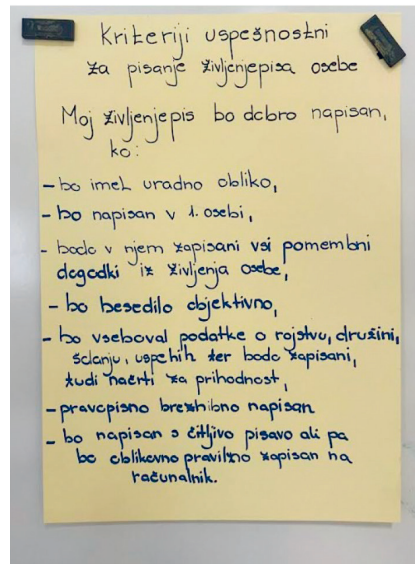 Kriteriji uspešnosti
za pisanje življenjepisa osebe
Moj življenjepis bo dobro napisan,
ko:
- bo imel uradno obliko,
- bo napisan v 1. osebi,
- bodo v njem zapisani vsi pomembni
dogodki iz življenja osebe,
- bo besedilo objektivno,
- bo vseboval podatke o rojstvu, družini,
šolanju, uspehih ter bodo zapisani,
tudi načrti za prihodnost,
- pravopisno brezhibno napisan
- bo napisan s čitljivo pisavo ali pa
bo oblikovno pravilno zapisan na
računalnik.